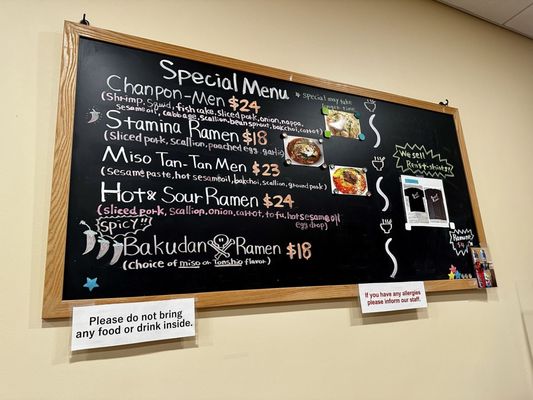 Special Menu
* special may take
longer time
Chanpon-Men $24
(shrimp, squid, fishcake, sliced pork, onion, nappa,
sesame oil, cabbage, scallion, beansprout, bakchoi, carrot)
Stamina Ramen $18
(sliced pork, scallion, poached egg, garlic)
Miso Tan-Tan Men $23
(sesame paste, hot sesame oil, bakchoi, scallion, ground pork)
Hot & Sour Ramen $24
(sliced pork, scallion, onion, carrot, tofu, hot sesame oil
egg drop)
spicy
Bakudan Ramen $18
(choice of miso or Tonshio flavor)
We sell
T-shirts!
Please do not bring
any food or drink inside.
If you have any allergies
please inform our staff.